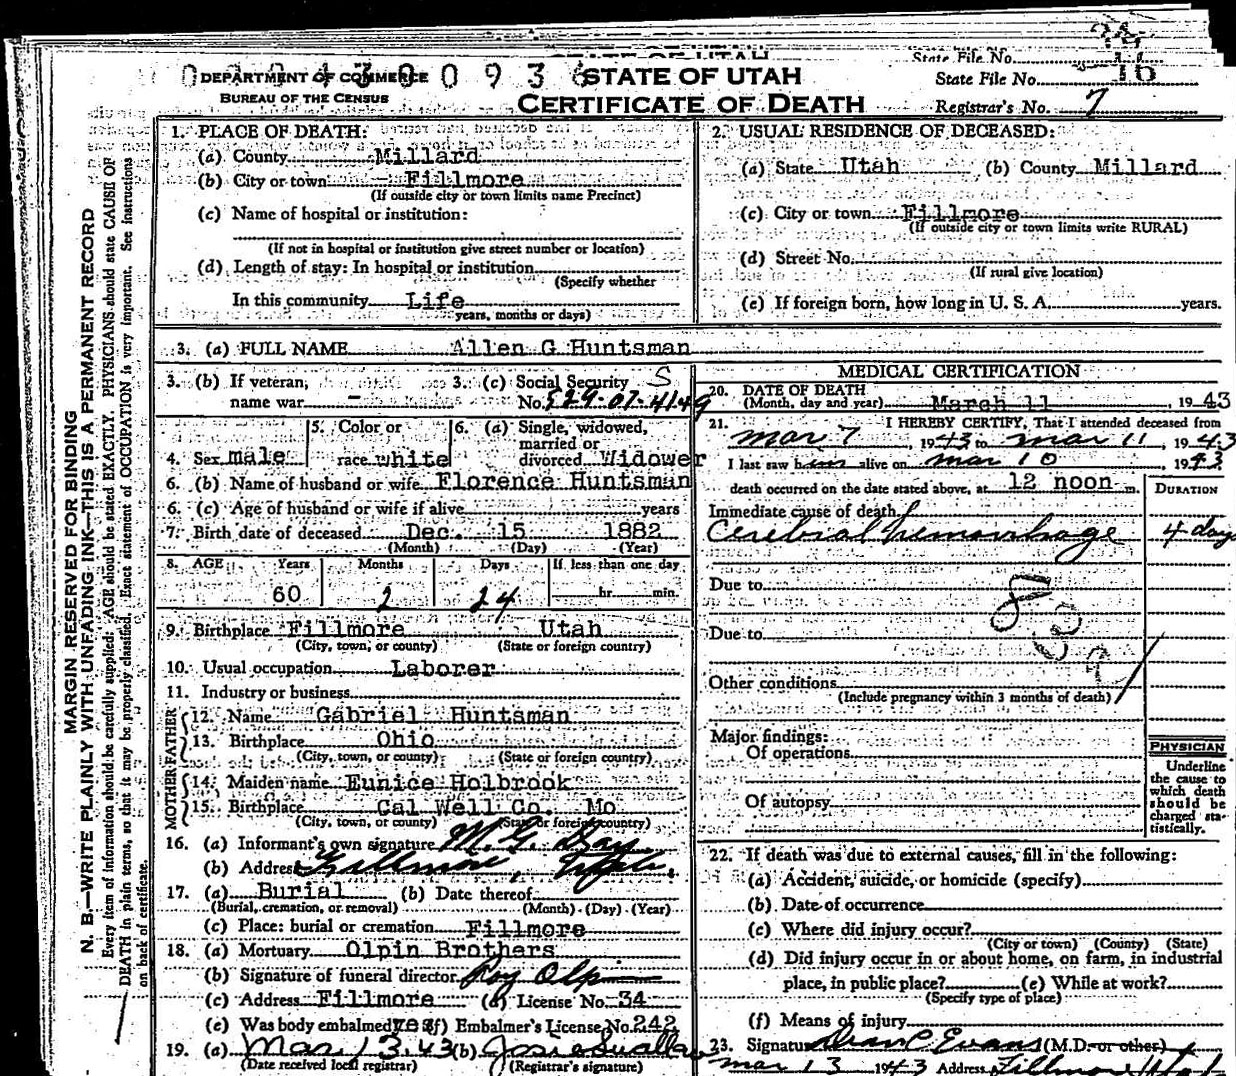 STATE OF UTAH
State File No.
DEPARTMENT OF COMMERCE
BUREAU OF THE CENSUS
STATE OF UTAH
CERTIFICATE OF DEATH
State File No. 16
Registrar's No. 7
MARGIN RESERVED FOR BINDING
N. B.—WRITE PLAINLY WITH UNFADING INK—THIS IS A PERMANENT RECORD
Every item of information should be carefully supplied. AGE should be stated EXACTLY. PHYSICIANS should state CAUSE OF
DEATH in plain terms, so that it may be properly classified. Exact statement of OCCUPATION is very important. See instructions
on back of certificate.
1. PLACE OF DEATH:
(a) County Millard
(b) City or town Fillmore
(If outside city or town limits name Precinct)
(c) Name of hospital or institution:
(If not in hospital or institution give street number or location)
(d) Length of stay: In hospital or institution
(Specify whether
In this community Life
years, months or days)
2. USUAL RESIDENCE OF DECEASED:
(a) State Utah (b) County Millard
(c) City or town Fillmore
(If outside city or town limits write RURAL)
(d) Street No.
(If rural give location)
(e) If foreign born, how long in U. S. A. years.
3. (a) FULL NAME Allen G Huntsman
3. (b) If veteran, 3. (c) Social Security
name war - No. 529-07-4149
4. Sex male 5. Color or race white 6. (a) Single, widowed, married or divorced Widower
6. (b) Name of husband or wife Florence Huntsman
6. (c) Age of husband or wife if alive years
7. Birth date of deceased Dec. 15 1882
(Month) (Day) (Year)
8. AGE Years Months Days If less than one day
60 2 24 hr. min.
9. Birthplace Fillmore Utah
(City, town, or county) (State or foreign country)
10. Usual occupation Laborer
11. Industry or business
FATHER
12. Name Gabriel Huntsman
13. Birthplace Ohio
(City, town, or county) (State or foreign country)
MOTHER
14. Maiden name Eunice Holbrook
15. Birthplace Cal Well Co. Mo
(City, town, or county) (State or foreign country)
16. (a) Informant's own signature M. G. Day
(b) Address Fillmore, Utah.
17. (a) Burial (b) Date thereof
(Burial, cremation, or removal) (Month) (Day) (Year)
(c) Place: burial or cremation Fillmore
18. (a) Mortuary Olpin Brothers
(b) Signature of funeral director Roy Olpin
(c) Address Fillmore (d) License No. 34
(e) Was body embalmed yes (f) Embalmer's License No. 242
19. (a) Mar. 13, 43 (b) Josie Swallow
(Date received local registrar) (Registrar's signature)
MEDICAL CERTIFICATION
20. DATE OF DEATH
(Month, day and year) March 11, 1943
21. I HEREBY CERTIFY, That I attended deceased from
Mar 7, 1943 to Mar 11, 1943
I last saw him alive on Mar 10, 1943
death occurred on the date stated above, at 12 noon m. DURATION
Immediate cause of death
Cerebral hemorrhage 4 days
Due to
Due to
Other conditions
(Include pregnancy within 3 months of death)
Major findings:
Of operations
Of autopsy
PHYSICIAN
Underline
the cause to
which death
should be
charged sta-
tistically.
22. If death was due to external causes, fill in the following:
(a) Accident, suicide, or homicide (specify)
(b) Date of occurrence
(c) Where did injury occur?
(City or town) (County) (State)
(d) Did injury occur in or about home, on farm, in industrial
place, in public place? (e) While at work?
(Specify type of place)
(f) Means of injury
23. Signature Dean C Evans (M.D. or other)
Mar 13 1943 Address Fillmore Utah